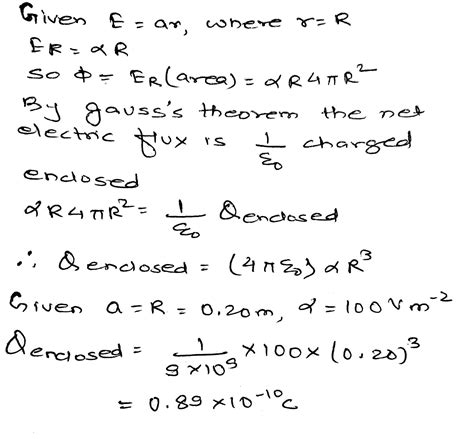 Given E = ar, where r = R
ER = αR
so Φ = ER(area) = αR4πR²
By gauss's theorem the net
electric flux is 1/ε₀ charged
enclosed
αR4πR² = 1/ε₀ Qenclosed
∴ Qenclosed = (4πε₀) αR³
Given a = R = 0.20m, α = 100Vm⁻²
Qenclosed = 1/9×10⁹ ×100×(0.20)³
= 0.89 ×10⁻¹⁰C